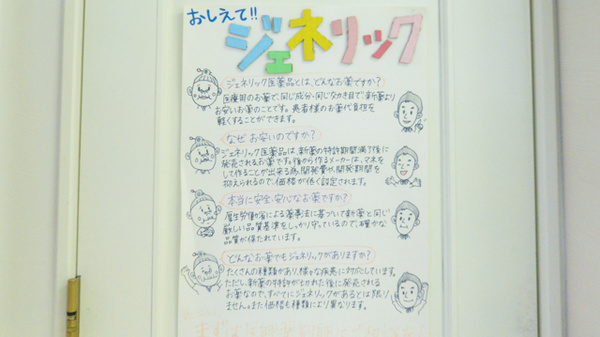 おしえて!!
ジェネリック
ジェネリック医薬品とは、どんなお薬ですか?
医療用のお薬で、同じ成分・同じ効き目で、新薬より
お安いお薬のことです。患者様のお薬代負担を
軽くすることができます。
なぜお安いのですか?
ジェネリック医薬品は、新薬の特許期間満了後に
発売されるお薬です。後から作るメーカーは、マネを
して作ることが出来る為、開発費や、開発期間を
抑えられるので、価格が低く設定されます。
本当に安全・安心なお薬ですか?
厚生労働省による薬事法に基づいて新薬と同じ
厳しい品質基準をしっかり守っているので、確かな
品質が保たれています。
どんなお薬でもジェネリックがありますか?
たくさんの種類があり、様々な疾患に対応しています。
ただし、新薬の特許がきれた後に発売される
お薬なので、すべてにジェネリックがあるとは限り
ません。また価格も種類により異なります。